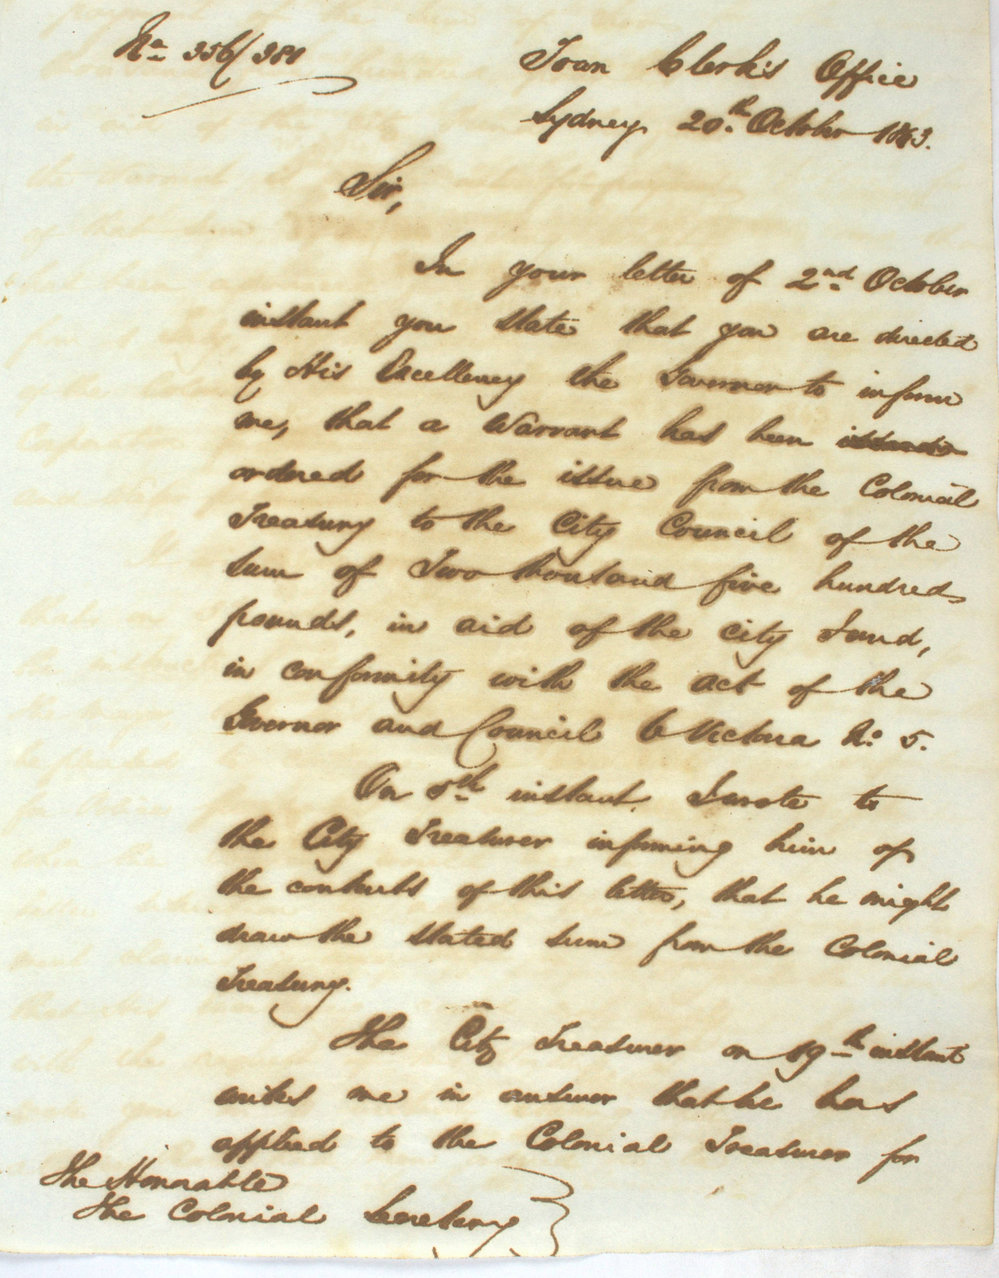 No 356/381
Town Clerk's Office
Sydney 20th October 1843.
Sir,
In your letter of 2nd October
instant you state that you are directed
by His Excellency the Governor to inform
me, that a Warrant has been
ordered for the issue from the Colonial
Treasury to the City Council of the
sum of Two thousand five hundred
pounds, in aid of the city Fund,
in conformity with the act of the
Governor and Council 6 Victoria No 5.
On 5th instant I wrote to
the City Treasurer informing him of
the contents of this letter, that he might
draw the stated sum from the Colonial
Treasury.
The City Treasurer on 19th instant
writes me in answer that he has
applied to the Colonial Treasurer for
The Honorable
The Colonial Secretary